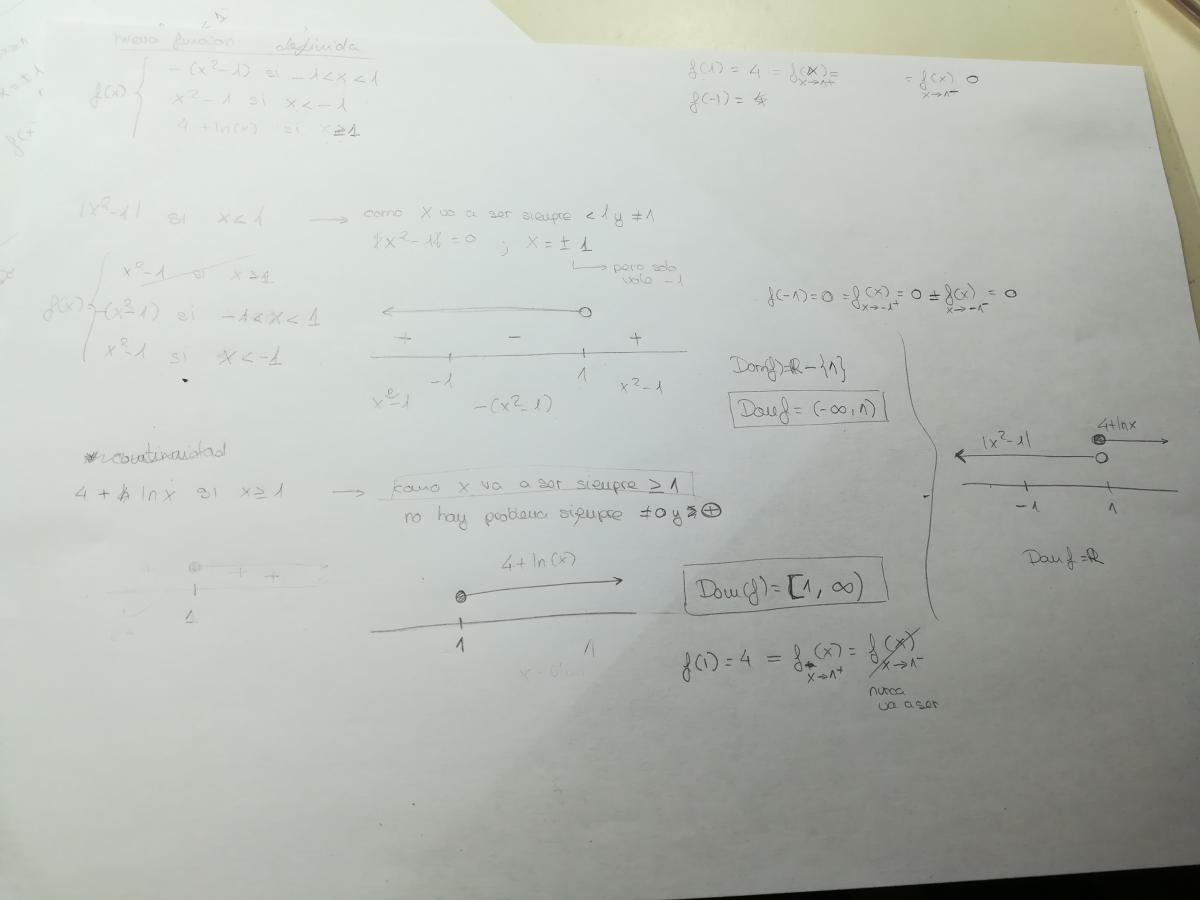 nueva función definida
f(x) { -(x²-1) si -1<x<1
x²-1 si x<-1
4+ln(x) si x≥1
f(1) = 4 = f(x) = = f(x) 0
x→1+ x→1-
f(-1) =
|x²-1| si x<1 → como x va a ser siempre <1 y ≠1
|x²-1| = 0 ; x = ± 1
↳ pero solo
vale -1
f(x) { x²-1 si x≥1
-(x²-1) si -1<x<1
x²-1 si x<-1
+ - +
-1 1
x²-1 -(x²-1) x²-1
f(-1)=0 = f(x) = 0 = f(x) = 0
x→-1+ x→-1-
Dom(f)=ℝ-{1}
Dom f = (-∞,1)
4+lnx
|x²-1|
-1 1
Dom f = ℝ
continuidad
4 + ln x si x≥1 → como x va a ser siempre ≥1
no hay problema siempre ≠0 y +
+ + +
1
4+ln(x)
1 1
Dom(f) = [1, ∞)
f(1)=4 = f(x) = f(x)
x→1+ x→1-
nunca
va a ser